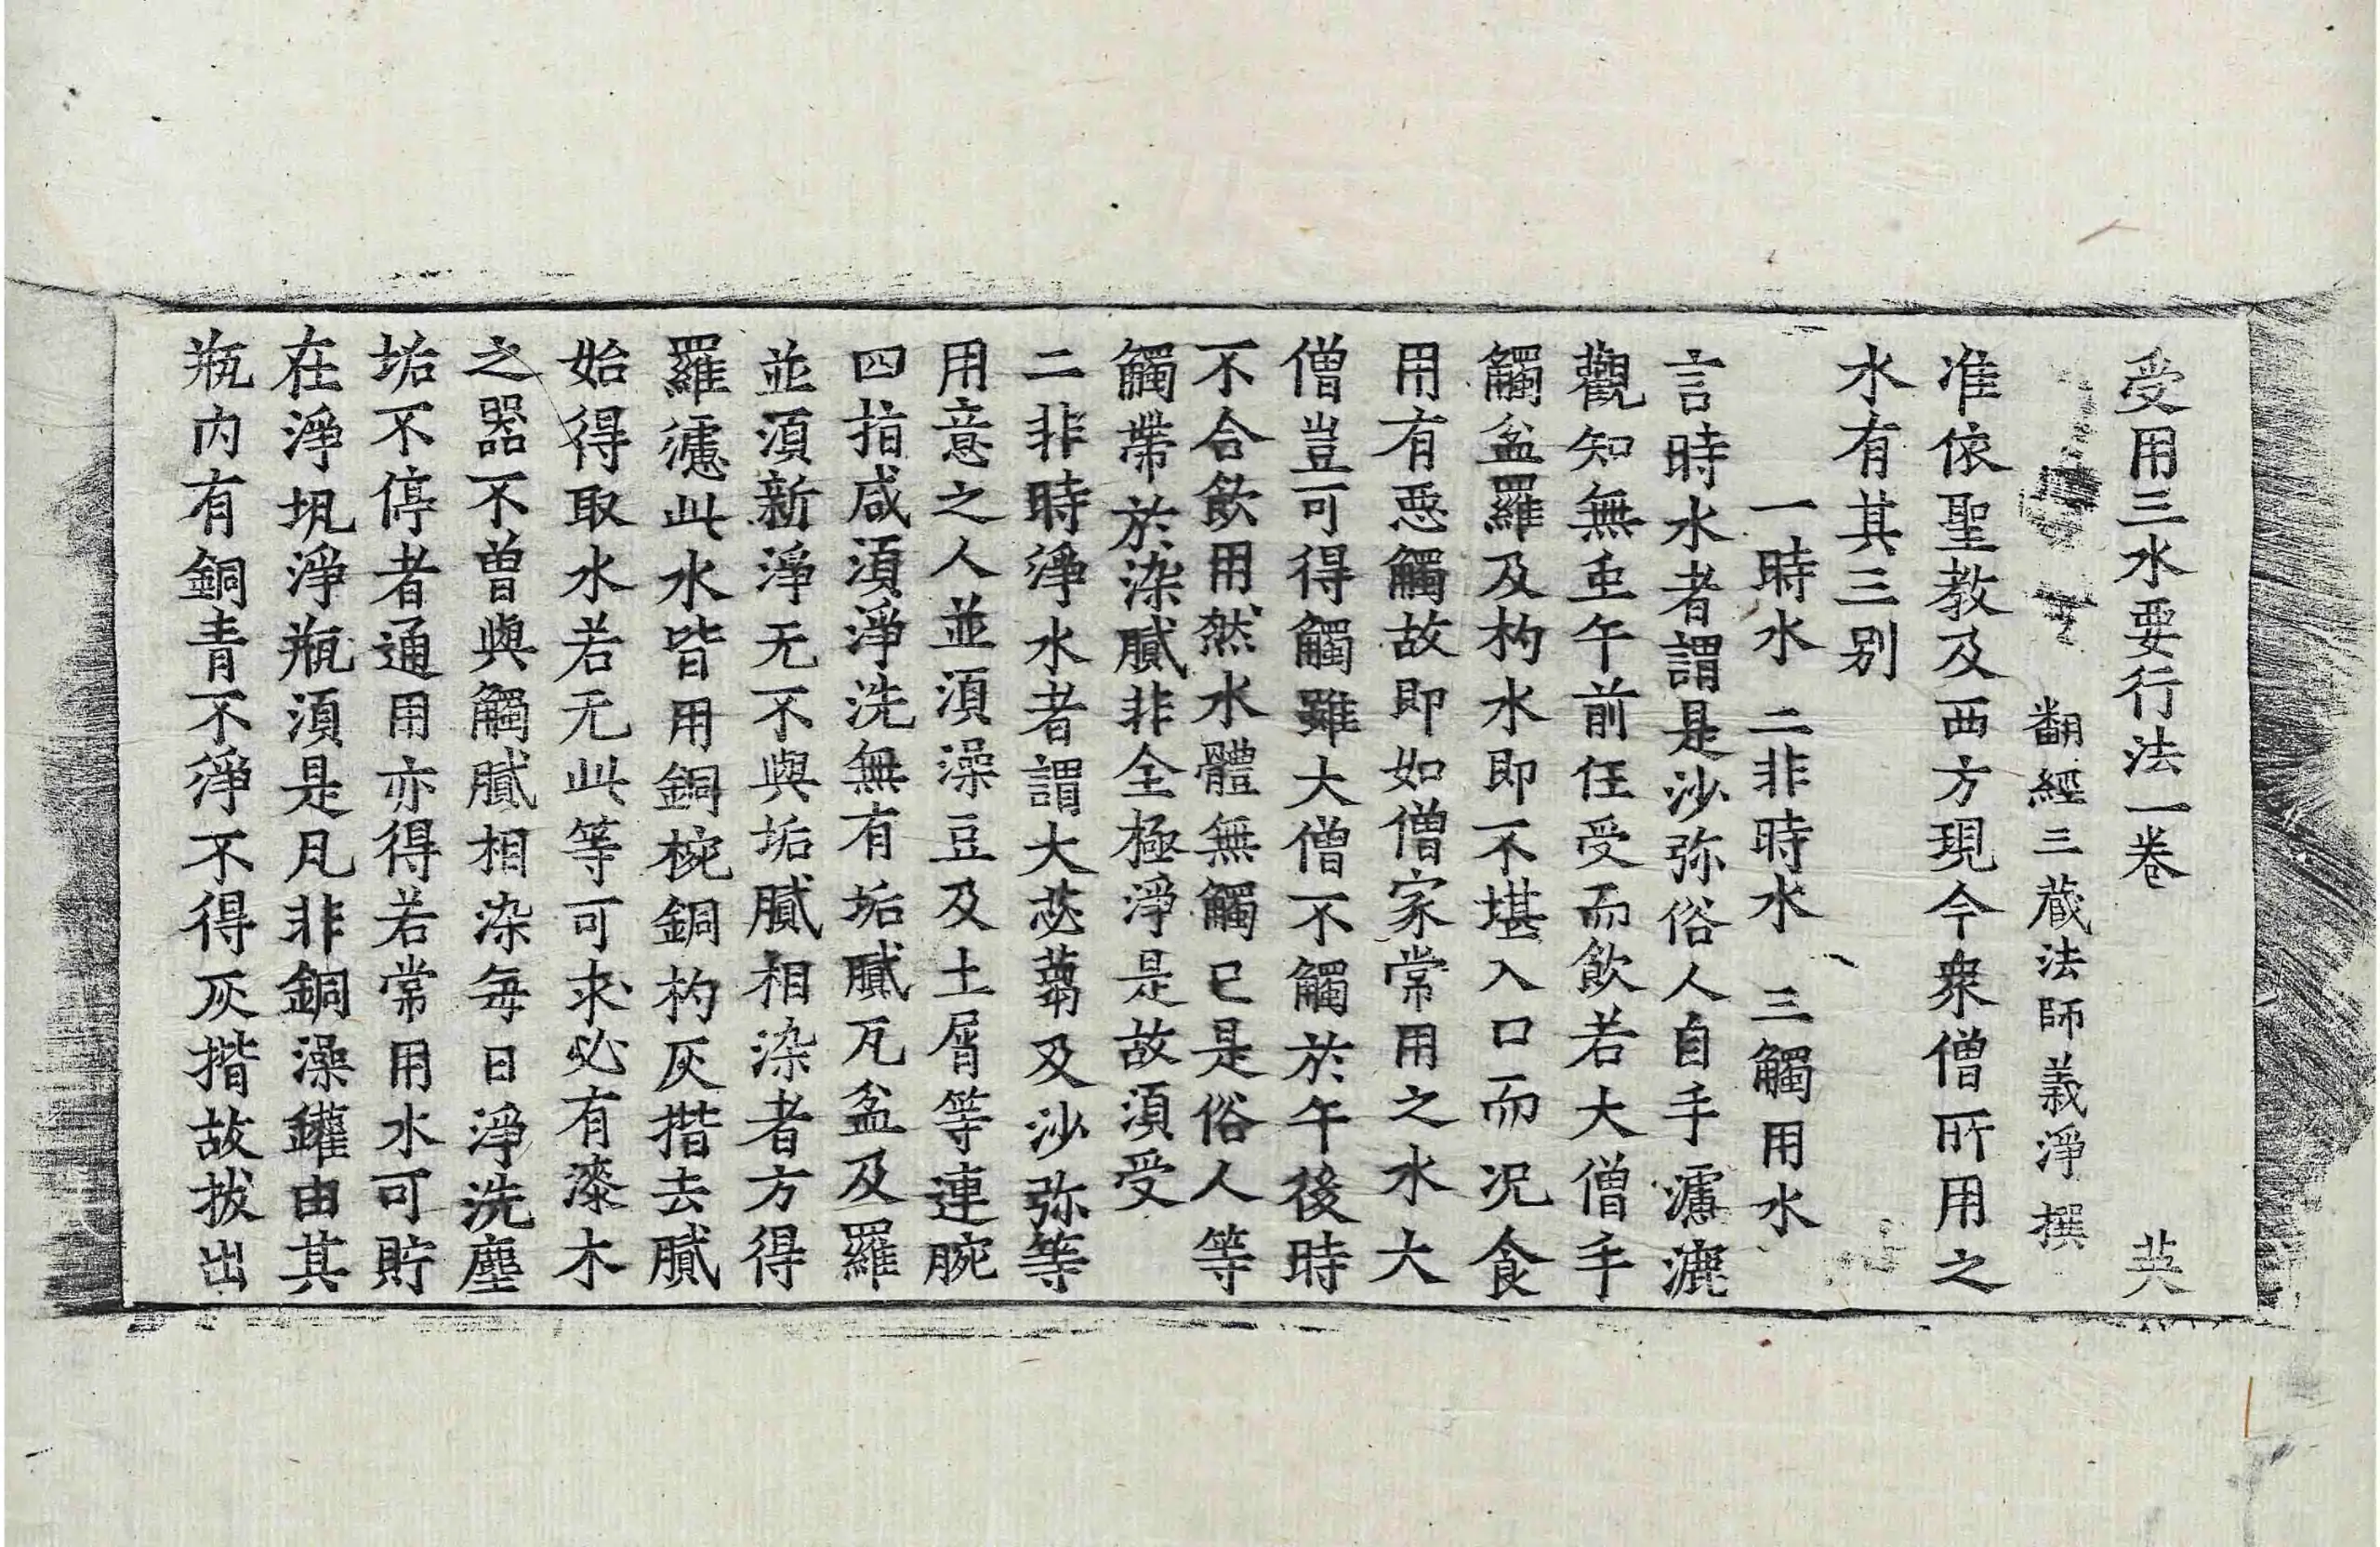 受用三水要行法一卷 英
翻經三藏法師義淨撰
准依聖教及西方現今衆僧所用之
水有其三别
一時水 二非時水 三觸用水
言時水者謂是沙弥俗人自手濾漉
觀知無虫午前任受而飲若大僧手
觸盆羅及杓水即不堪入口而况食
用有惡觸故即如僧家常用之水大
僧豈可得觸雖大僧不觸於午後時
不合飲用然水體無觸已是俗人等
觸帶於染膩非全極淨是故湏受
二非時淨水者謂大苾蒭及沙弥等
用意之人並湏澡豆及土屑等連腕
四指咸湏淨洗無有垢膩瓦盆及羅
並湏新淨无不與垢膩相染者方得
羅濾此水皆用銅椀銅杓灰揩去膩
始得取水若无此等可求必有漆木
之器不曾與觸膩相染每日淨洗塵
垢不停者通用亦得若常用水可貯
在淨㼚淨瓶湏是凡非銅澡鑵由其
瓶内有銅青不淨不得灰揩故拔出